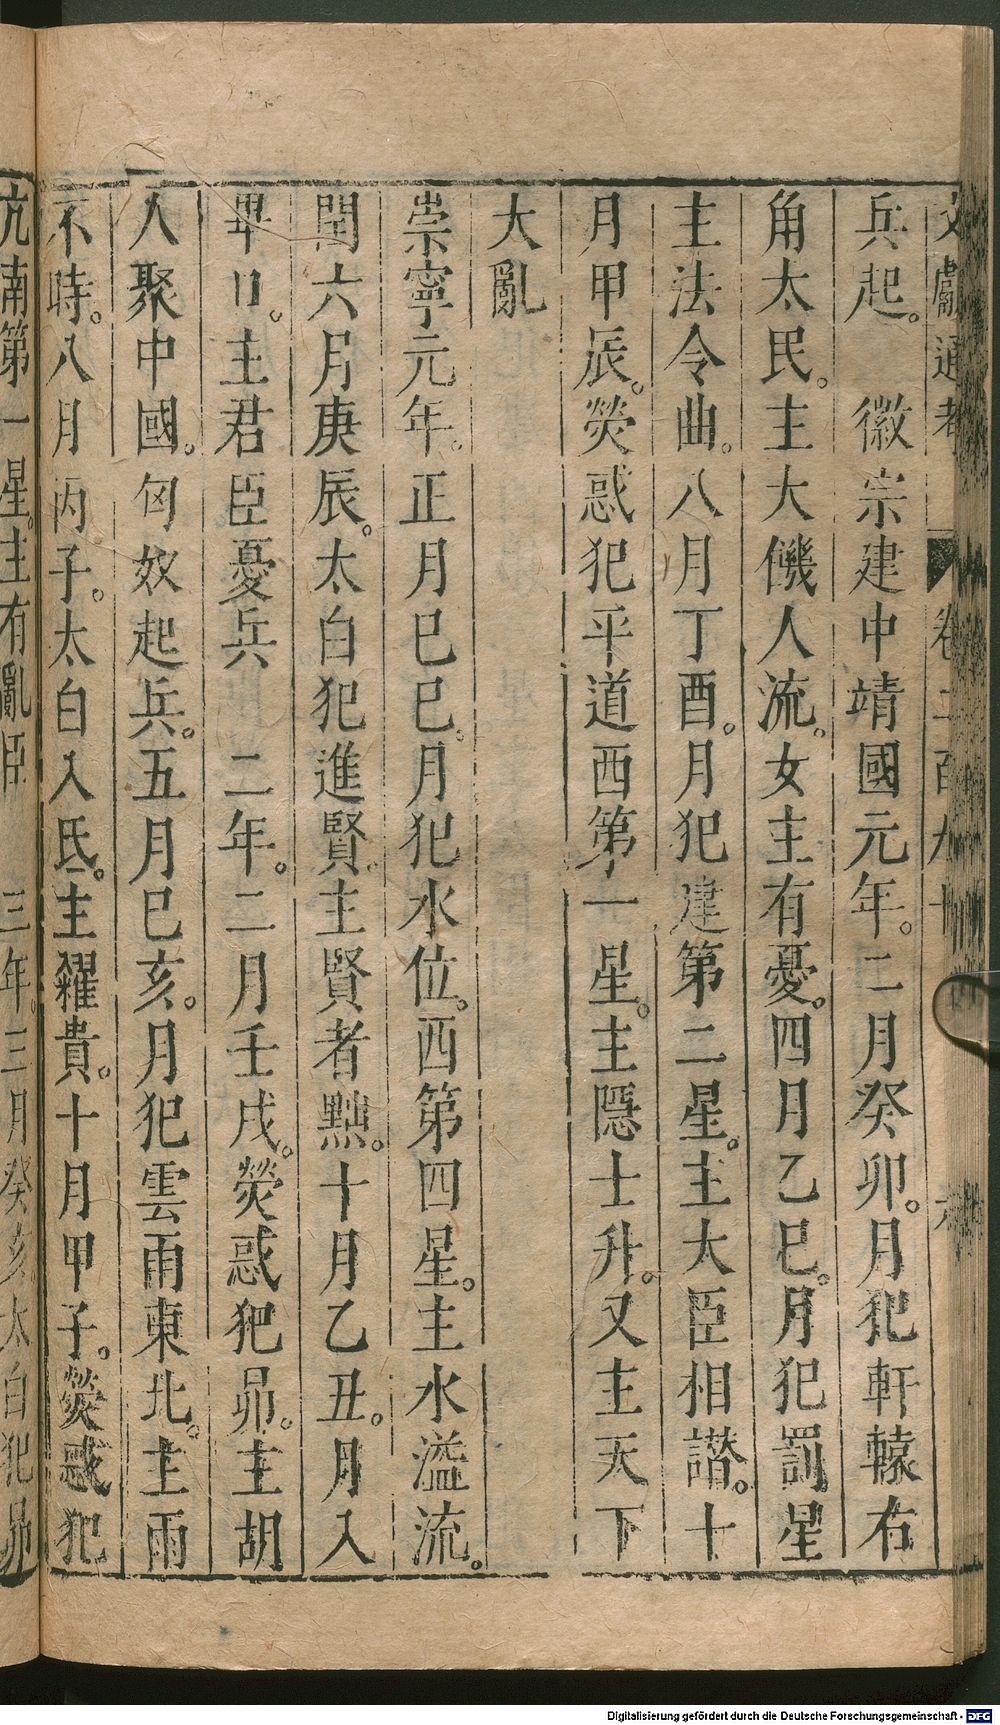 文獻通考 卷二百九十四 六
兵起。 徽宗建中靖國元年。二月癸卯。月犯軒轅右
角太民。主大僟人流。女主有憂。四月乙巳。月犯罰星
主法令曲。八月丁酉。月犯建第二星。主大臣相譛。十
月甲辰。熒惑犯平道西第一星。主隱士升。又主天下
大亂
崇寧元年。正月巳巳。月犯水位。西第四星。主水溢流。
閏六月庚辰。太白犯進賢。主賢者黜。十月乙丑。月入
畢口。主君臣憂兵 二年。二月壬戌。熒惑犯昴。主胡
人聚中國。匈奴起兵。五月巳亥。月犯雲雨東北。主雨
不時。八月丙子。太白入氐。主糴貴。十月甲子。熒惑犯
亢南第一星。主有亂臣 三年。三月癸亥。太白犯昴
Digitalisierung gefördert durch die Deutsche Forschungsgemeinschaft - DFG